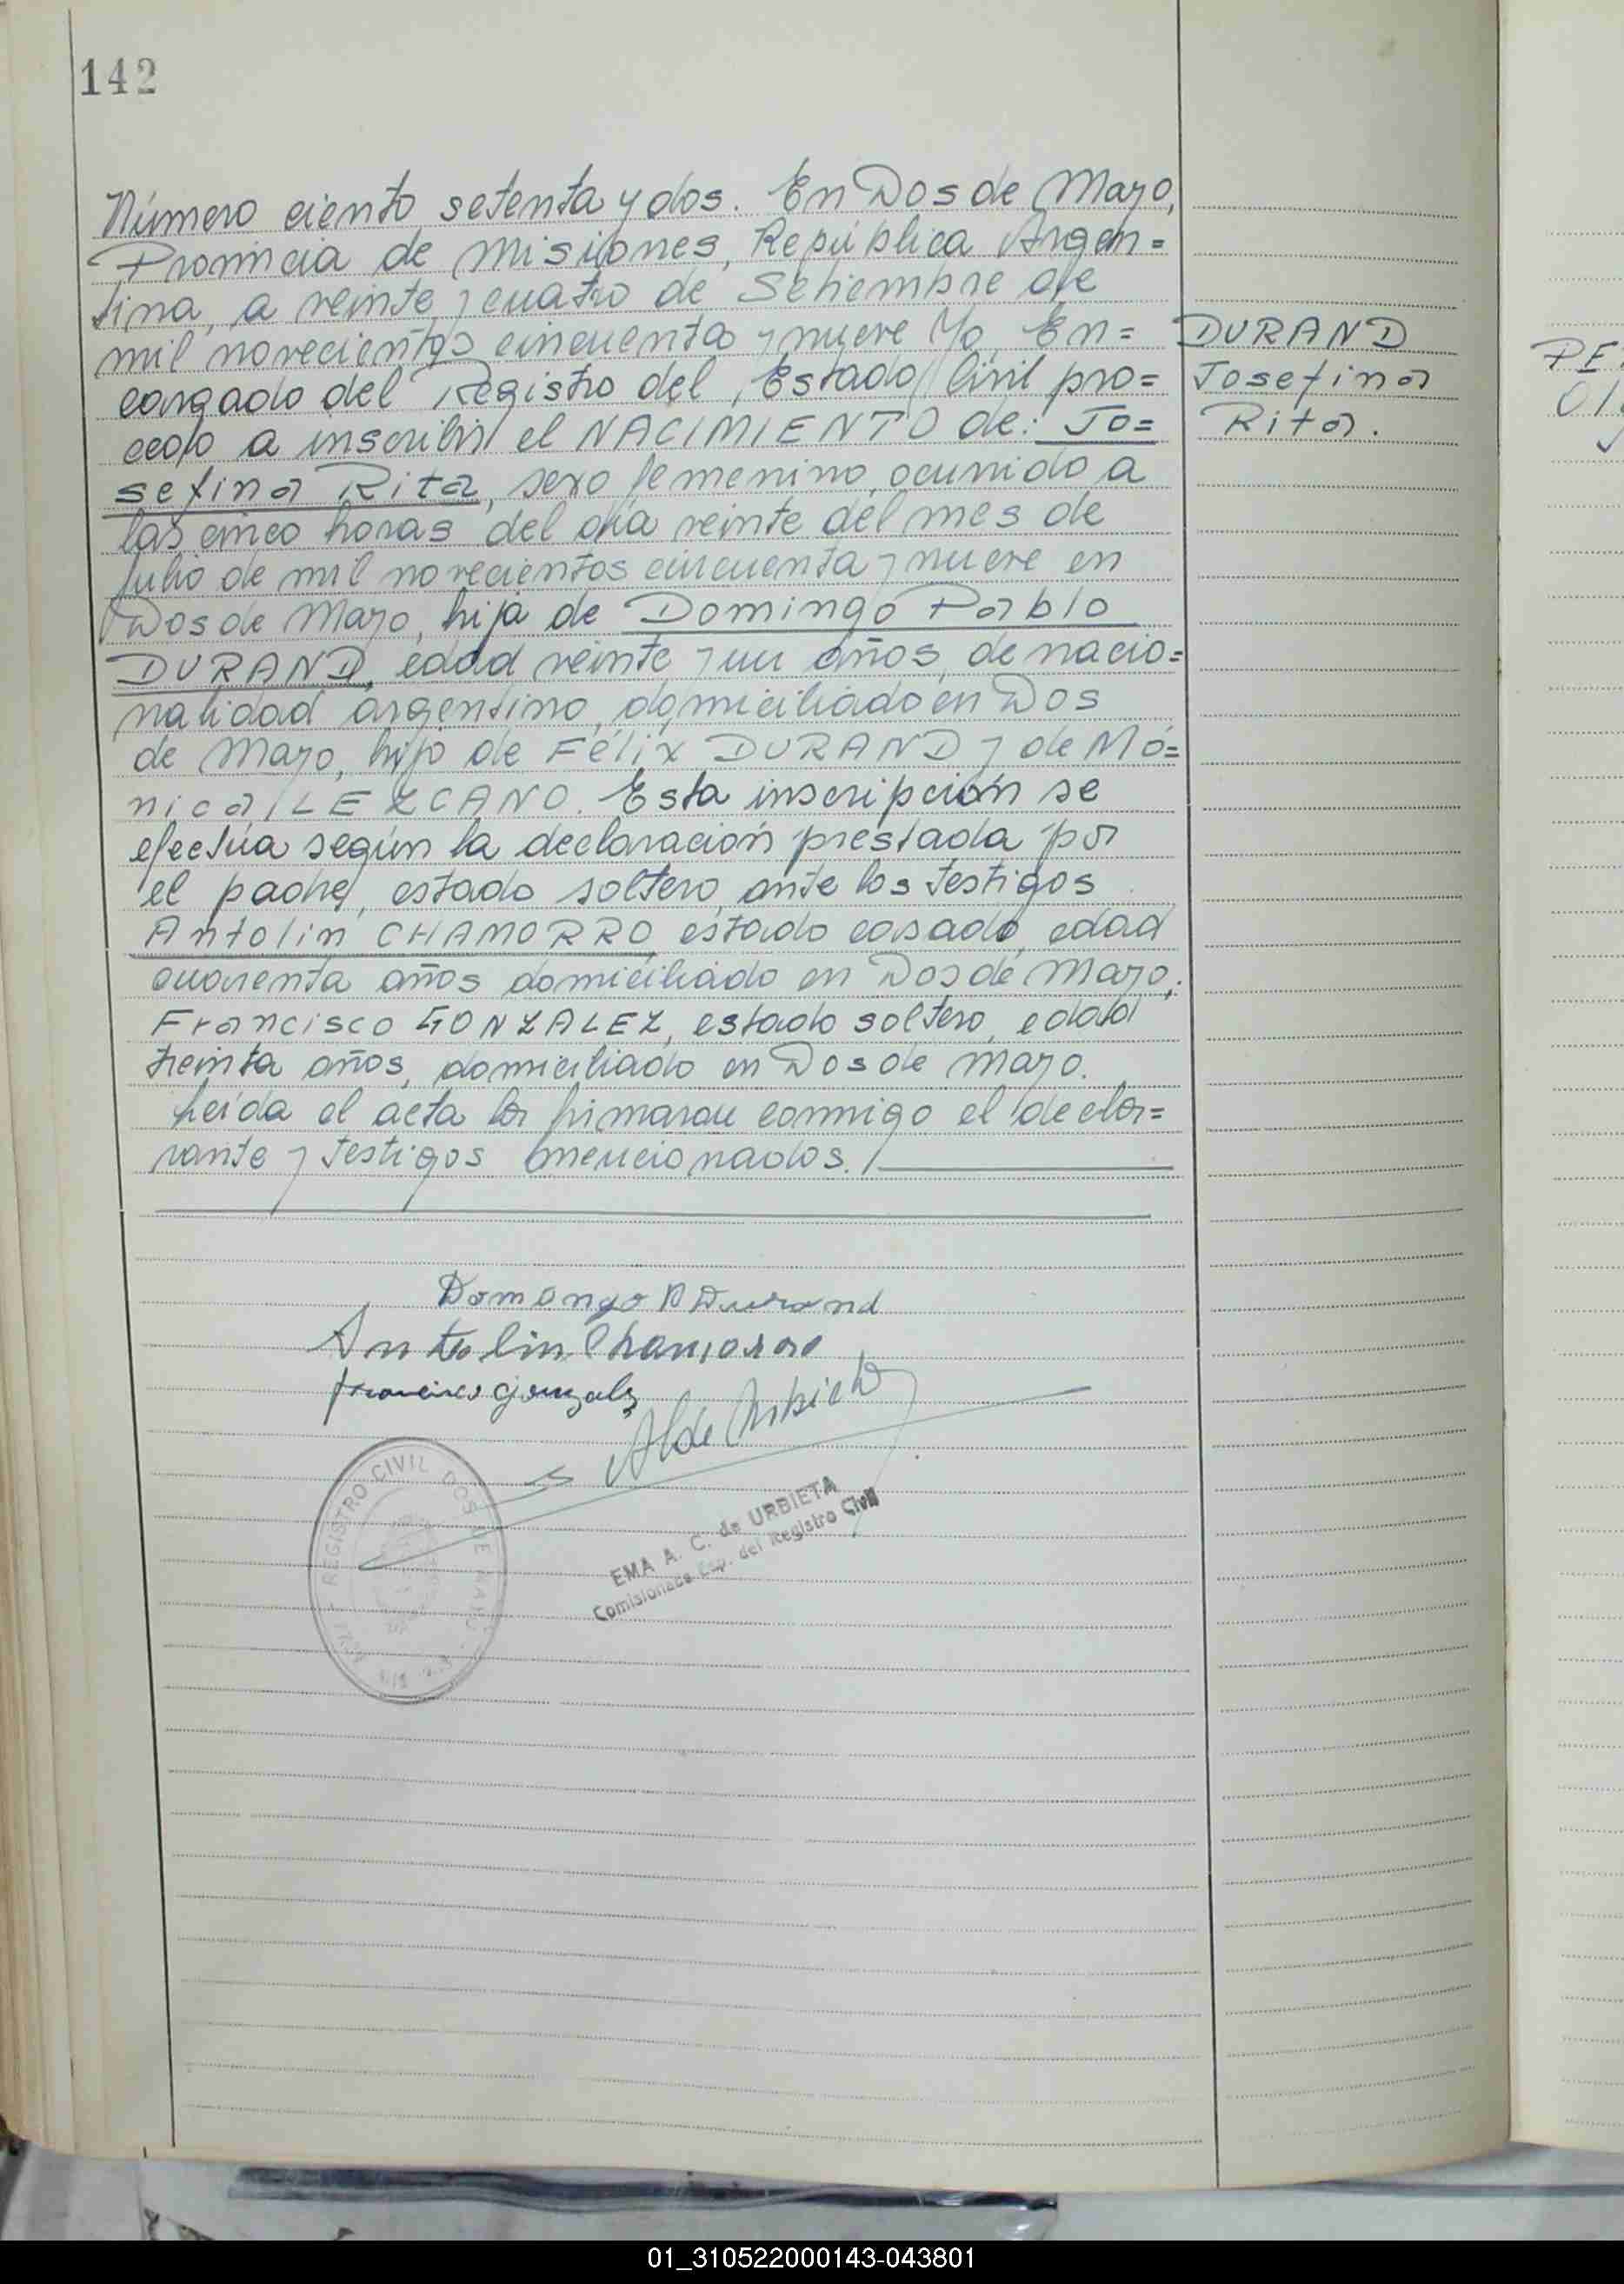 142
Número ciento setenta y dos. En Dos de Mayo,
Provincia de Misiones, República Argen=
tina, a veinte y cuatro de Setiembre de
mil novecientos cincuenta y nueve Yo, En=
cargado del Registro del Estado Civil pro=
cedo a inscribir el NACIMIENTO de: Jo=
sefina Rita, sexo femenino, ocurrido a
las cinco horas del día veinte del mes de
Julio de mil novecientos cincuenta y nueve en
Dos de Mayo, hija de Domingo Pablo
DURAND, edad veinte y un años, de nacio=
nalidad argentino, domiciliado en Dos
de Mayo, hijo de Félix DURAND y de Mó=
nica LEZCANO. Esta inscripción se
efectúa según la declaración prestada por
el padre, estado soltero, ante los testigos
Antolin CHAMORRO estado casado, edad
cuarenta años domiciliado en Dos de Mayo,
Francisco GONZALEZ, estado soltero, edad
treinta años, domiciliado en Dos de Mayo.
Leída el acta la firmaron conmigo el decla=
rante y testigos mencionados.
DURAND
Josefina
Rita.
Domingo P Durand
Antolin Chamorro
Francisco Gonzalez
A C de Urbieta
REGISTRO CIVIL DOS DE MAYO
EMA A. C. de URBIETA
Comisionada Esp. del Registro Civil
PE
Ol
01_310522000143-043801